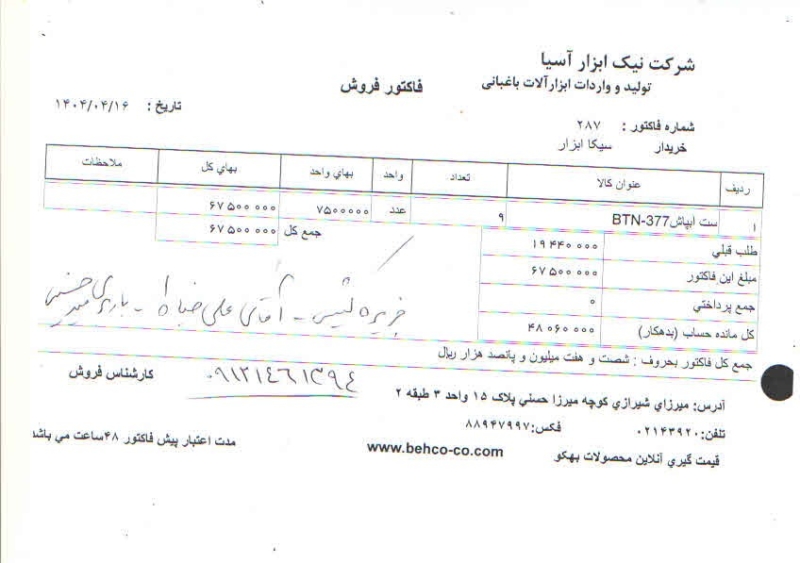 شرکت نیک ابزار آسیا
تولید و واردات ابزارآلات باغبانی
فاکتور فروش
تاریخ : ۱۴۰۴/۰۴/۱۶
شماره فاکتور : ۲۸۷
خریدار سیکا ابزار
ردیف عنوان کالا تعداد واحد بهاي واحد بهاي کل ملاحظات
۱ ست ابپاش BTN-377 ۹ عدد ۷۵۰۰۰۰۰ ۶۷ ۵۰۰ ۰۰۰
جمع کل ۶۷ ۵۰۰ ۰۰۰
طلب قبلي ۱۹ ۴۴۰ ۰۰۰
مبلغ این فاکتور ۶۷ ۵۰۰ ۰۰۰
جمع پرداختي ۰
کل مانده حساب (بدهکار) ۴۸ ۰۶۰ ۰۰۰
جزیره کیش - آقای علی - باربری
جمع کل فاکتور بحروف : شصت و هفت میلیون و پانصد هزار ریال
کارشناس فروش
۰۹۱۲۱۴۶۱۳۹۴
آدرس: میرزاي شیرازي کوچه میرزا حسني پلاک ۱۵ واحد ۳ طبقه ۲
تلفن: ۰۲۱۴۳۹۲۰ فکس: ۸۸۹۴۷۹۹۷
مدت اعتبار پیش فاکتور ۴۸ساعت مي باشد
قیمت گیري آنلاین محصولات بهکو www.behco-co.com